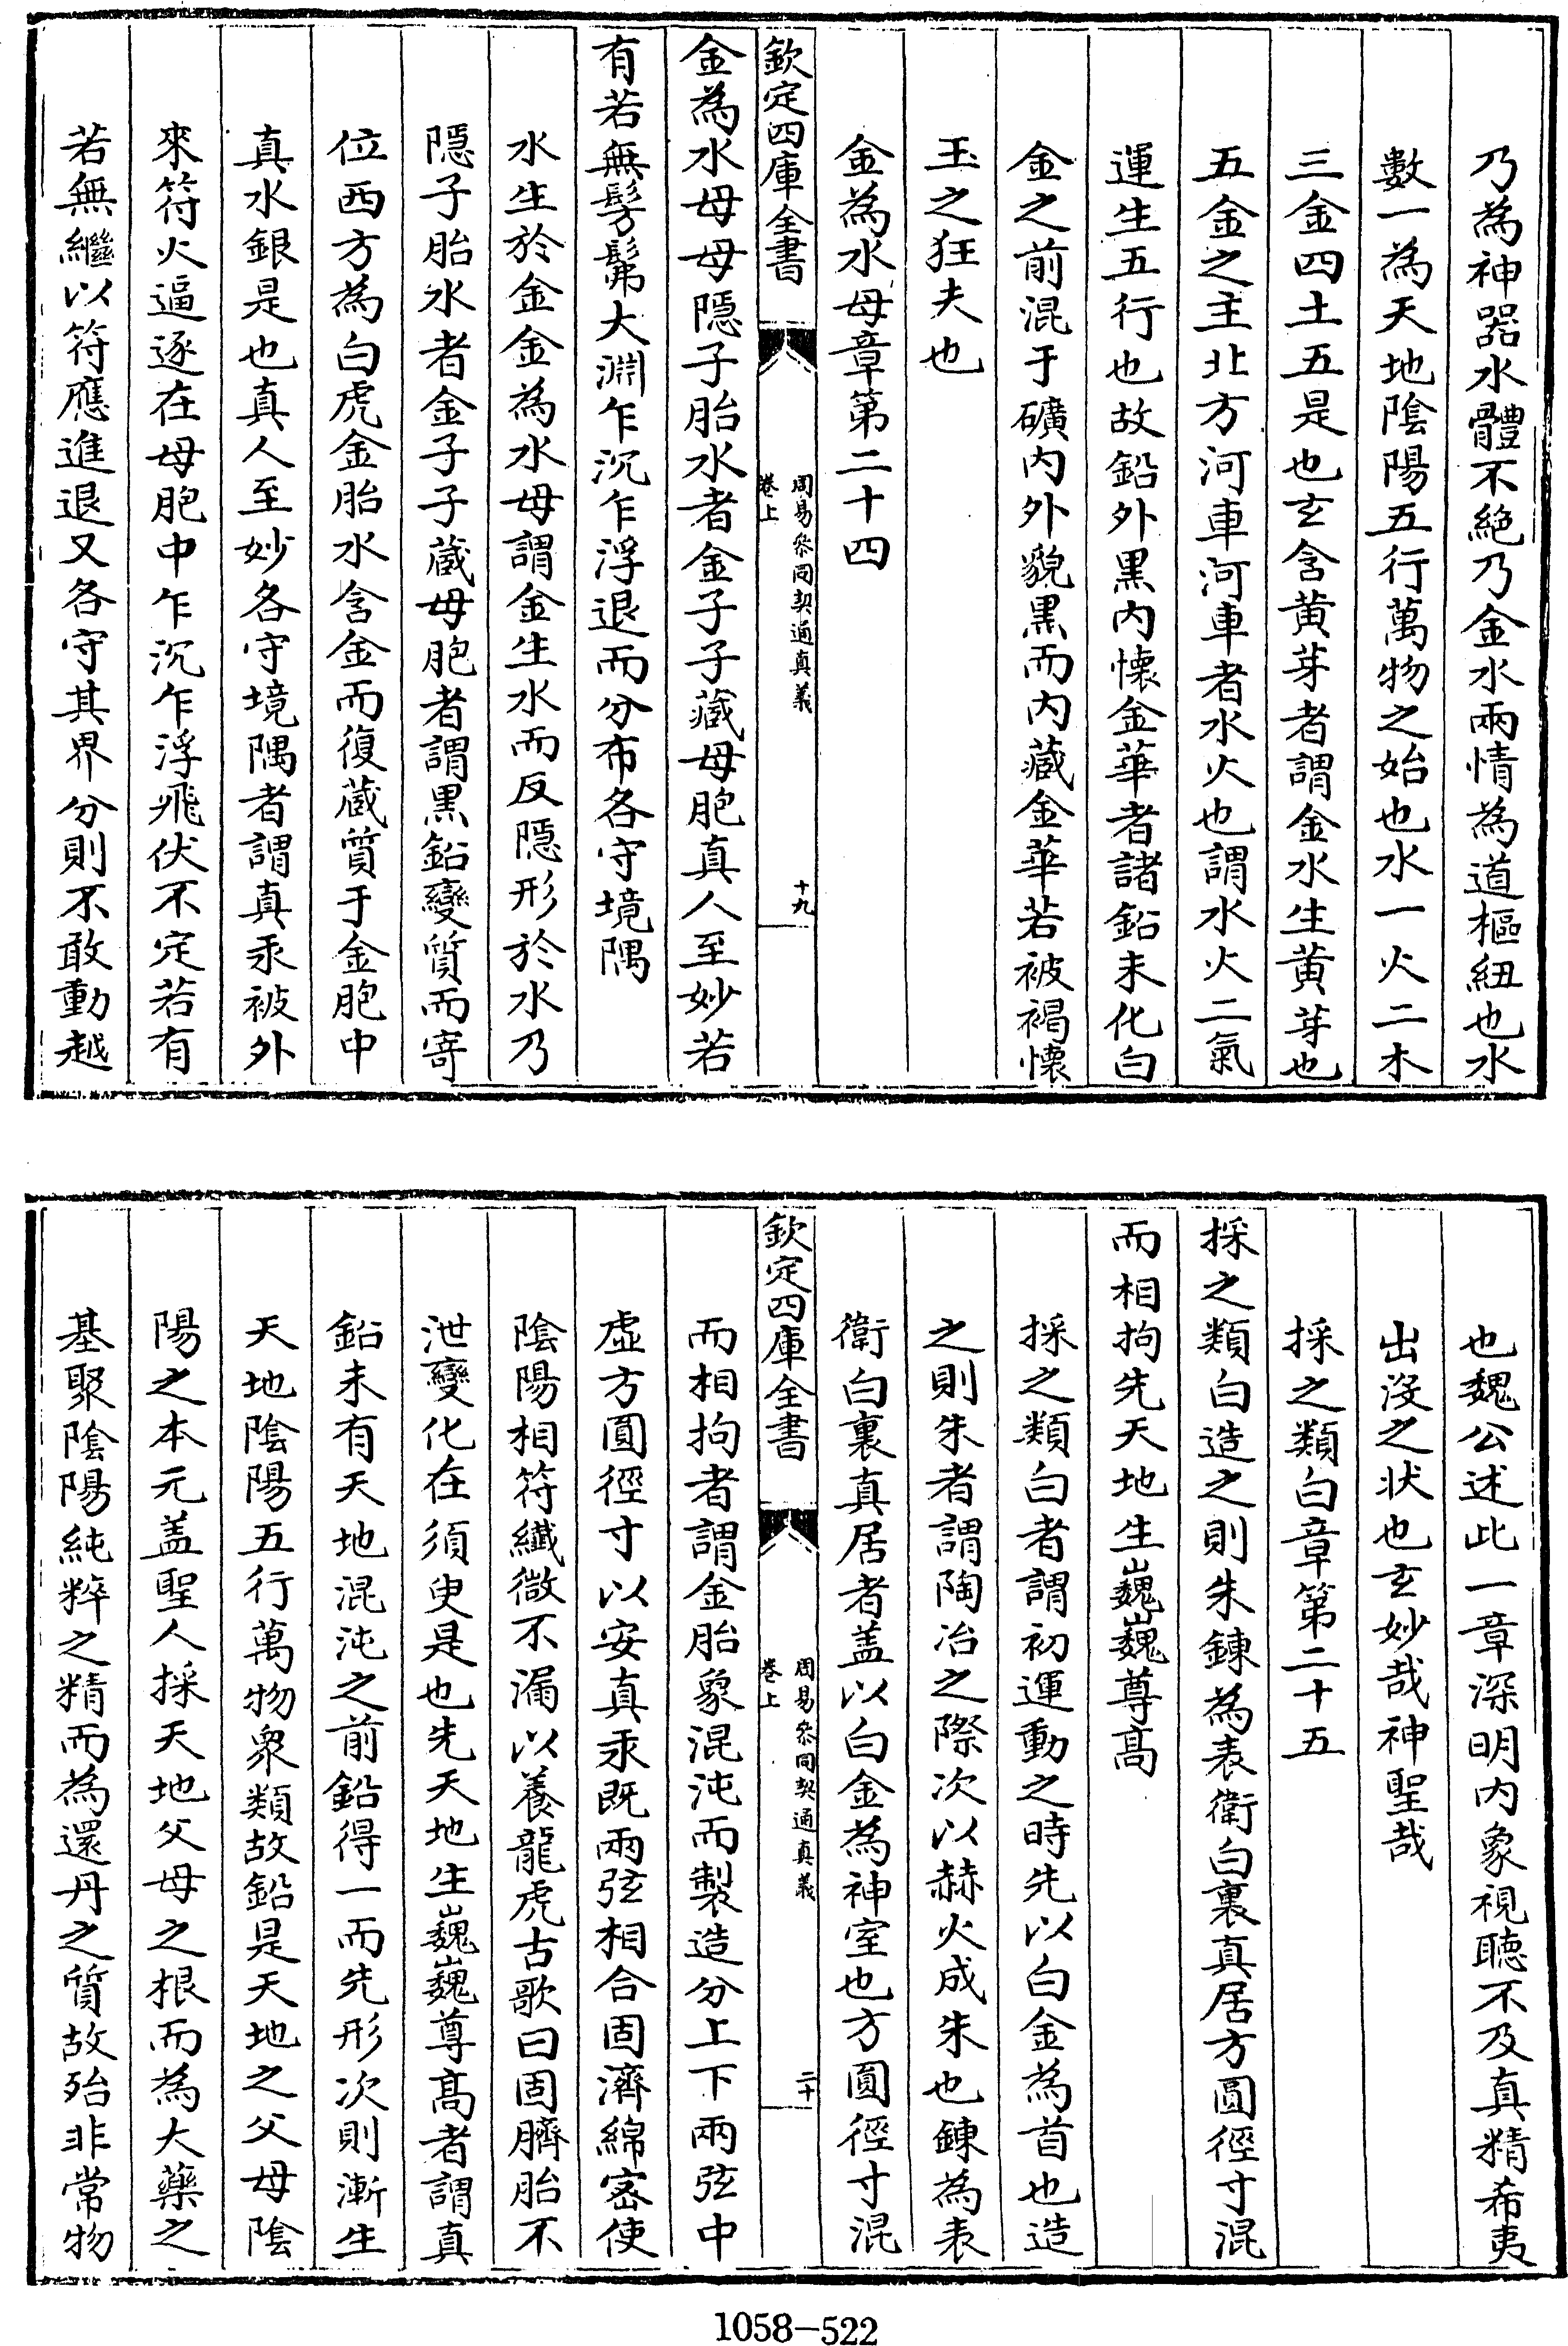 乃為神器水體不絕乃金水兩情為道樞紐也水
數一為天地陰陽五行萬物之始也水一火二木
三金四土五是也玄含黃芽者謂金水生黃芽也
五金之主北方河車河車者水火也謂水火二氣
運生五行也故鉛外黑內懷金華者諸鉛未化白
金之前混于礦內外貌黑而內藏金華若被褐懷
玉之狂夫也
金為水母章第二十四
欽定四庫全書
周易參同契通真義
卷上
十九
金為水母母隱子胎水者金子子藏母胞真人至妙若
有若無髣髴大淵乍沉乍浮退而分布各守境隅
水生於金金為水母謂金生水而反隱形於水乃
隱子胎水者金子子藏母胞者謂黑鉛變質而寄
位西方為白虎金胎水含金而復藏質于金胞中
真水銀是也真人至妙各守境隅者謂真汞被外
來符火逼逐在母胞中乍沉乍浮飛伏不定若有
若無繼以符應進退又各守其界分則不敢動越
也魏公述此一章深明內象視聽不及真精希夷
出沒之狀也玄妙哉神聖哉
採之類白章第二十五
採之類白造之則朱鍊為表衛白裏真居方圓徑寸混
而相拘先天地生巍巍尊高
採之類白者謂初運動之時先以白金為首也造
之則朱者謂陶冶之際次以赫火成朱也鍊為表
衛白裏真居者盖以白金為神室也方圓徑寸混
欽定四庫全書
周易參同契通真義
卷上
二十
而相拘者謂金胎象混沌而製造分上下兩弦中
虛方圓徑寸以安真汞既兩弦相合固濟綿密使
陰陽相符纖微不漏以養龍虎古歌曰固臍胎不
泄變化在須臾是也先天地生巍巍尊高者謂真
鉛未有天地混沌之前鉛得一而先形次則漸生
天地陰陽五行萬物衆類故鉛是天地之父母陰
陽之本元盖聖人採天地父母之根而為大藥之
基聚陰陽純粹之精而為還丹之質故殆非常物
1058-522